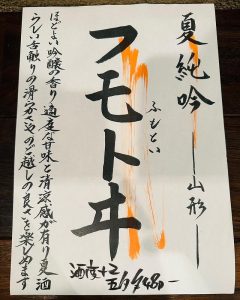 夏純吟―山形―
ふもとい
フモトヰ
ほどよい吟醸の香り適度な甘味と清涼感が有り夏酒
らしい舌触りの滑らかさとのど越しの良さを楽しめます
酒度+2
五勺¥480-